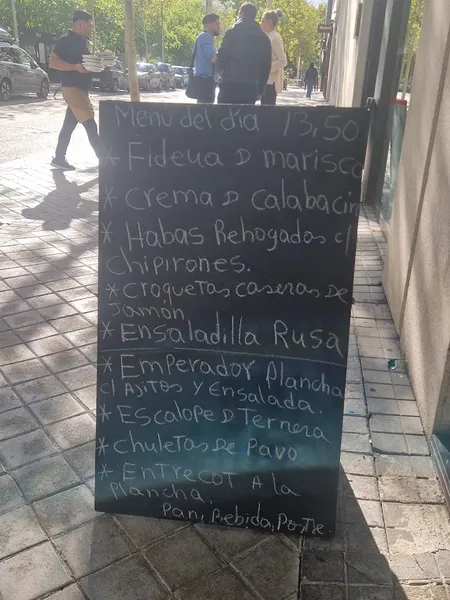 Menu del dia 13,50
* Fideua D marisco
* Crema D Calabacin
* Habas Rehogadas c/
chipirones.
* Croquetas caseras De
Jamón
* Ensaladilla Rusa
* Emperador Plancha
c/ Ajitos y Ensalada.
* Escalope D Ternera
* Chuletas De Pavo
* Entrecot A la
Plancha.
Pan, Bebida, Postre